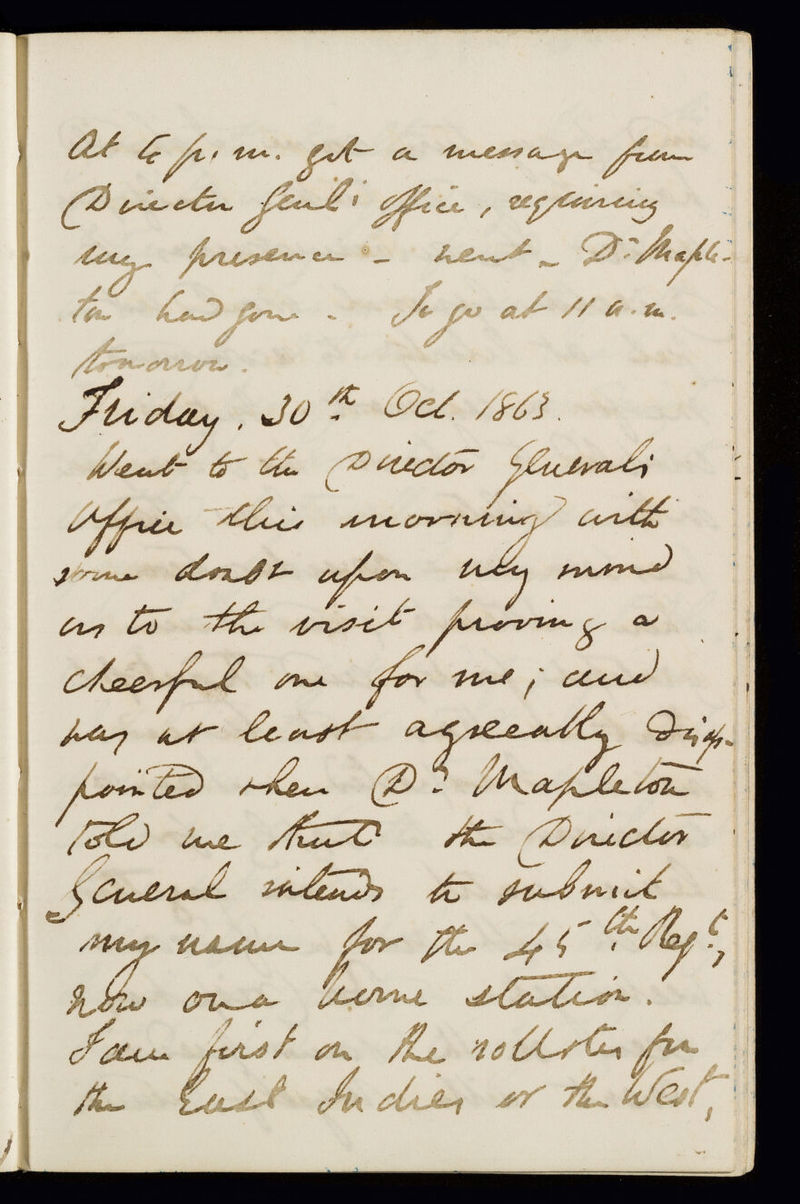 At 6 p.m. got a message from
Director Genl's office, requiring
my presence - went - Dr. Maple-
ton had gone - To go at 11 a.m.
tomorrow.
Friday. 30th Oct. 1863.
Went to the Director General's
Office this morning with
some doubt upon my mind
as to the visit proving a
cheerful one for me; and
was at least agreeably disap-
pointed when Dr. Mapleton
told me that the Director
General intends to submit
my name for the 45th Regt,
now on a home station.
I am first on the rollster for
the East Indies or the West,